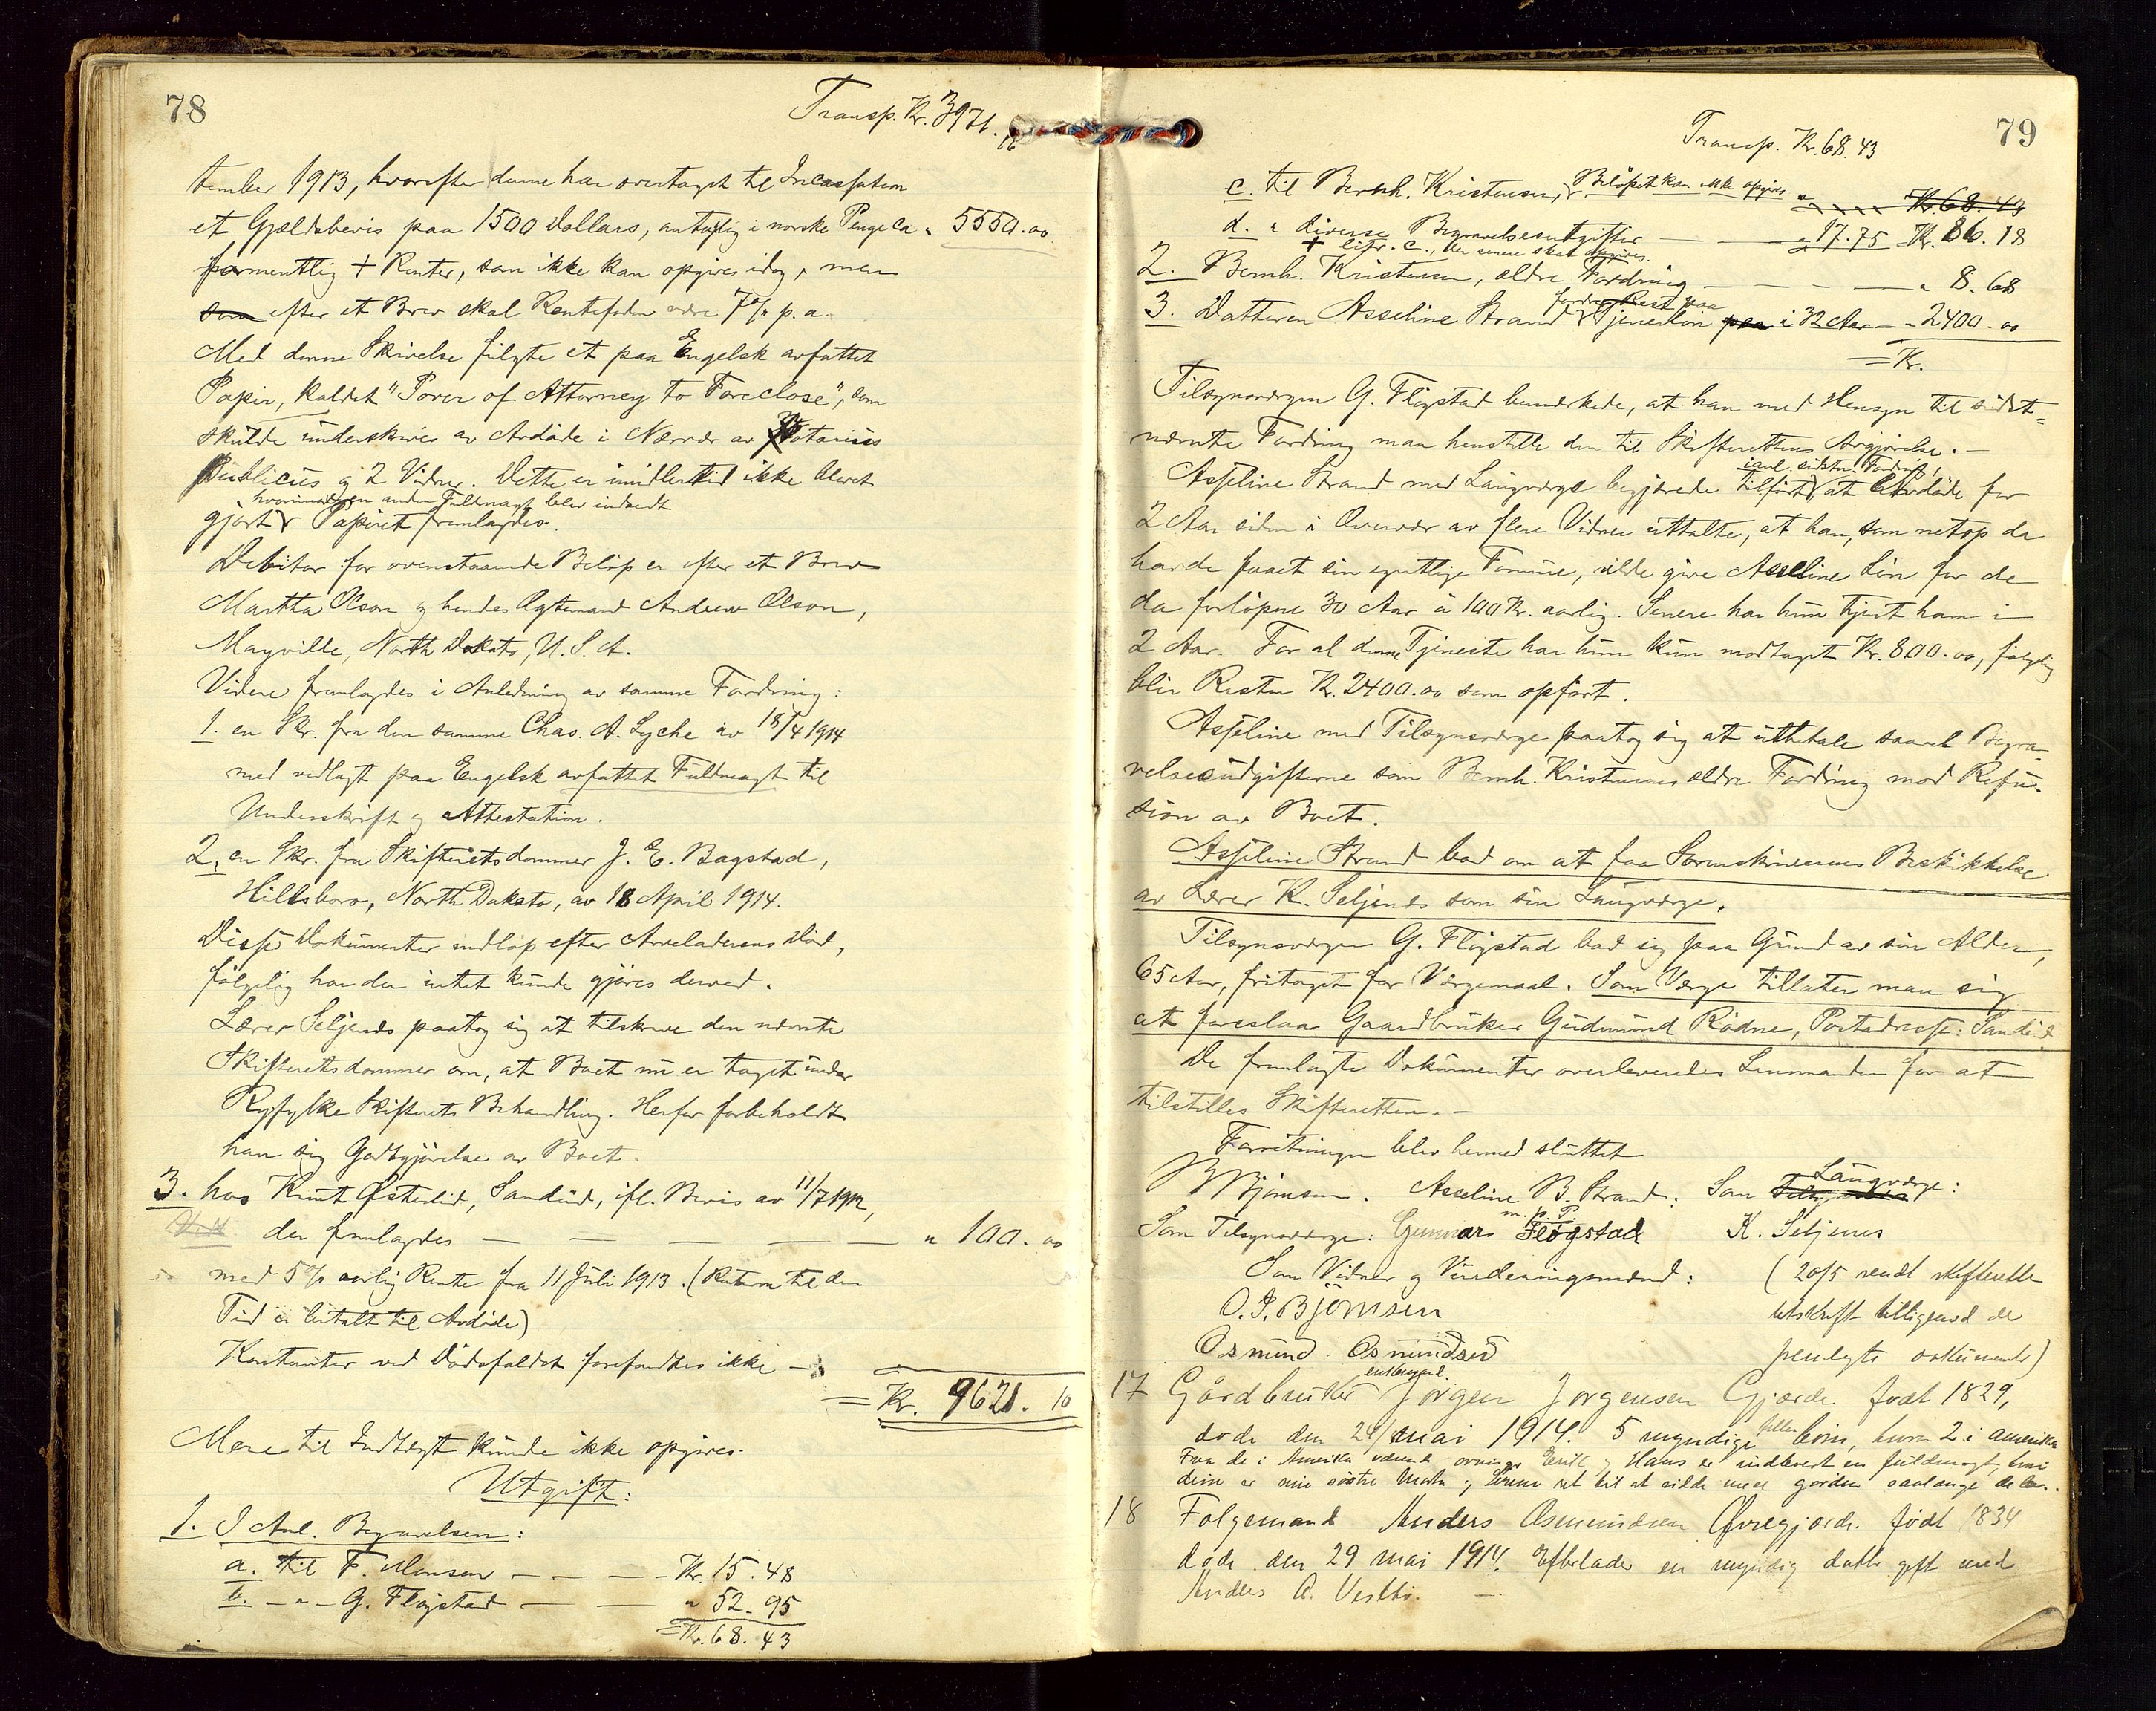 78
Transp. Kr. 3971.10
tember 1913, hvorefter denne har overtaget til Incassation
et Gjældsbevis paa 1500 Dollars, antagelig i norske Penge ca „ 5550.00
formentlig + Renter, som ikke kan opgives idag, men
som efter et Brev skal Rentefoden være 7% p.a.
Med denne Skrivelse fulgte et paa Engelsk avfattet
Papir, kaldet "Power of Attorney to Foreclose", som
skulde underskrives av Avdøde i Nærvær av Notarius
Publicus og 2 Vidner. Dette er imidlertid ikke blevet
hvorimod en anden Fuldmagt blev indsendt
gjort. Papiret fremlagdes.
Debitor for ovenstaaende Beløp er efter et Brev
Martha Olson og hendes Ægtemand Andrew Olson,
Mayville, North Dakota, U.S.A.
Videre fremlagdes i Anledning av samme Fordring:
1. en Skr. fra den samme Chas. A. Lyche av 18/4 1914
med vedlagt paa Engelsk avfattet Fuldmagt til
Underskrift og Attestation.
2. en Skr. fra Skifteretsdommer J. E. Bagstad,
Hillsboro, North Dakota, av 18 April 1914.
Disse Dokumenter indløp efter Arveladerens Død,
følgelig har der intet kunde gjøres derved.
Lærer Seljenes paatog sig at tilskrive den nævnte
Skifteretsdommer om, at Boet nu er taget under
Ryfylke Skifterets Behandling. Herfor forbeholdt
han sig Godtgjørelse av Boet.
3. hos Knut Østerlid, Sandeid, ifl. Bevis av 11/7 1912,
der fremlagdes — — — — „ 100.00
med 5% aarlig Rente fra 11 Juli 1913. (Renten til den
Tid er betalt til Avdøde)
Kontanter ved Dødsfaldet forefandtes ikke —
= Kr. 9621.10
Mere til Indtægt kunde ikke opgives.
Utgift:
1. I Anl. Begravelsen:
a. til F. Monsen — — — Kr. 15.48
b. — „ — G. Fløgstad — — „ 52.95
= Kr. 68.43
79
Transp. Kr. 68.43
c. til Bernh. Kristensen, Beløpet kan ikke opgives „ Kr. 68.43
d. „ diverse Begravelsesutgifter — — „ 17.75 Kr. 86.18
+ litr. c., der senere skal opgives.
2. Bernh. Kristensen, ældre Fordring — — — — „ 8.68
fordrer Rest paa
3. Datteren Asseline Strand Tjenerløn paa i 32 Aar — „ 2400.00
= Kr.
Tilsynsværgen G. Fløgstad bemerkede, at han med Hensyn til sidst-
nævnte Fordring maa henstille den til Skifterettens Avgjørelse. —
Asseline Strand med Laugværge begjærede tilført at Avdøde for
2 Aar siden i Overvær av flere Vidner uttalte, at han, som netop da
havde faaet sin egentlige Formue, vilde give Asseline Løn for de
da forløpne 30 Aar à 100 Kr. aarlig. Senere har hun tjent ham i
2 Aar. For al denne Tjeneste har hun kun modtaget Kr. 800.00, følgelig
blir Resten Kr. 2400.00 som opført.
Asseline med Tilsynsværge paatog sig at utbetale saavel Begra-
velsesudgifterne som Bernh. Kristensens ældre Fordring mod Refu-
sion av Boet.
Asseline Strand bad om at faa Sorenskriverens Beskikkelse
av Lærer K. Seljenes som sin Laugværge.
Tilsynsværgen G. Fløgstad bad sig paa Grund av sin Alder,
65 Aar, fritaget for Værgemaal. Som Værge tillater man sig
at foreslaa Gaardbruker Gudmund Rødne, Postadresse: Sandeid
De fremlagte Dokumenter overleveredes Lensmanden for at
tilstilles Skifteretten. —
Forretningen blev hermed sluttet
B Bjørnsen. Asseline B. Strand. Som Laugværge:
m. p. P.
Som Tilsynsværge: Gunnar Fløgstad K. Seljenes
Som Vidner og Vurderingsmænd: (20/5 sendt skifteretten
O. P. Bjørnsen utskrift tilligemed de
Osmund Osmundsen fremlagte dokumenter)
enkemand.
17 Gårdbruker Jørgen Jørgensen Gjærde født 1829,
døde den 24 mai 1914. 5 myndige børn, hvorav 2 i Amerika
Fra de i Amerika værende arvinger Erik og Hans er indlevert en fuldmagt, hvori
18 Følgemand Anders Osmundsen Øvregjærde født 1834
døde den 29 mai 1914. Efterlader en myndig datter gift med
Anders A. Vestbø. —